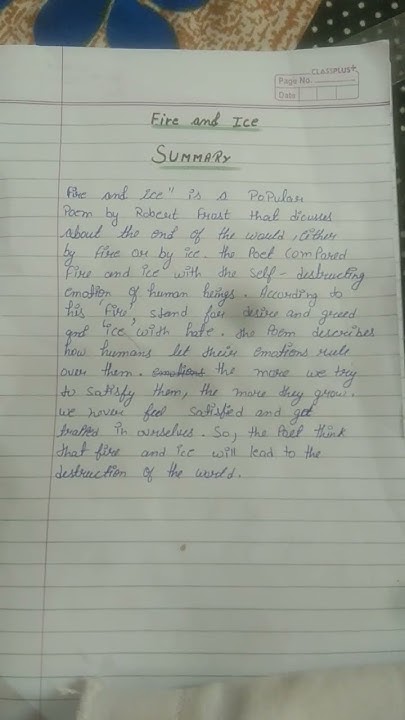 CLASSPLUS+
Page No.
Date
Fire and Ice
SUMMARY
Fire and ice" is a Popular
Poem by Robert Frost that dicuses
about the end of the would, Either
by fire or by ice. the Poet Compared
fire and ice with the self-destructing
emotion of human beings. According to
his 'fire' stand for desire and greed
and 'ice' with hate. the Poem describes
how humans let their emotions rule
over them. emotions the more we try
to satisfy them, the more they grow.
we never feel satisfied and get
traped in ourselves. So, the Poet think
that fire and ice will lead to the
destruction of the world.